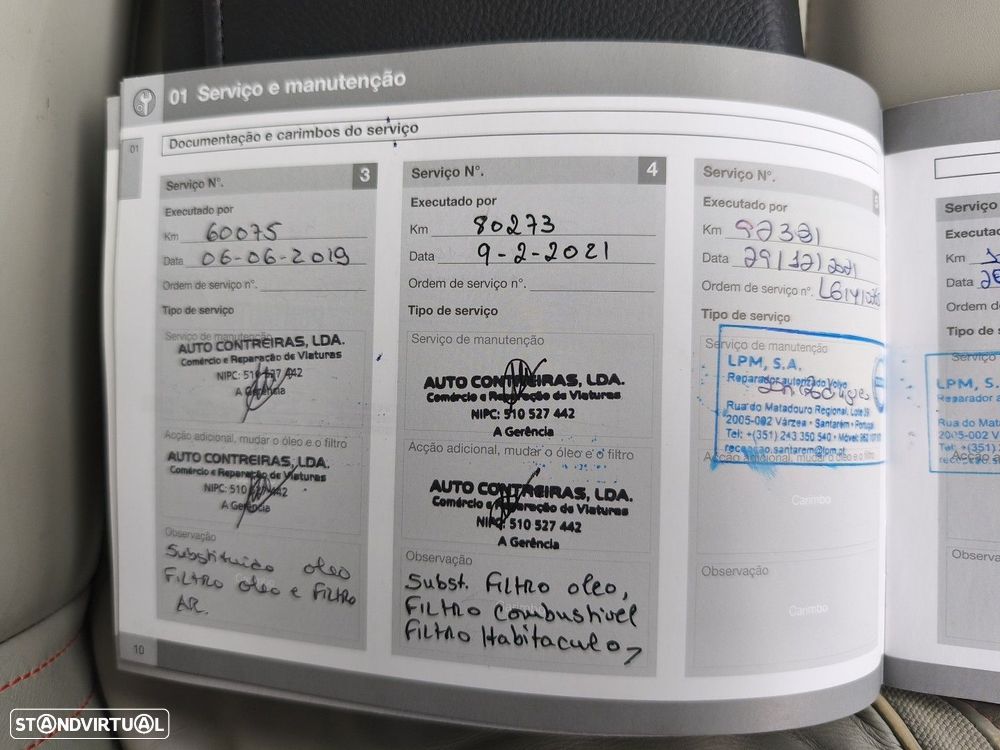 01 Serviço e manutenção
01
Documentação e carimbos do serviço
Serviço Nº. 3
Executado por
Km 60075
Data 06-06-2019
Ordem de serviço nº.
Tipo de serviço
Serviço de manutenção
AUTO CONTREIRAS, LDA.
Comércio e Reparação de Viaturas
NIPC: 510 527 442
A Gerência
Acção adicional, mudar o óleo e o filtro
AUTO CONTREIRAS, LDA.
Comércio e Reparação de Viaturas
NIPC: 510 527 442
A Gerência
Observação
Substituido oleo
FILTRO oleo e FILTRO
AR.
10
Serviço Nº. 4
Executado por
Km 80273
Data 9-2-2021
Ordem de serviço nº.
Tipo de serviço
Serviço de manutenção
AUTO CONTREIRAS, LDA.
Comércio e Reparação de Viaturas
NIPC: 510 527 442
A Gerência
Acção adicional, mudar o óleo e o filtro
AUTO CONTREIRAS, LDA.
Comércio e Reparação de Viaturas
NIPC: 510 527 442
A Gerência
Observação
Carimbo
Subst. FILTRO oleo,
FILTRO Combustivel
FILTRO Habitaculo,
Serviço Nº. 5
Executado por
Km 92381
Data 29/12/2021
Ordem de serviço nº.
Tipo de serviço
Serviço de manutenção
LPM, S.A.
Reparador autorizado Volvo
Rua do Matadouro Regional, Lote
2005-002 Várzea • Santarém • Portugal
Tel: +(351) 243 350 540 • Móvel:
recepcao.santarem@lpm.pt
Acção adicional, mudar o óleo e o filtro
Carimbo
Observação
Carimbo
Serviço
Executado
Km
Data
Ordem d
Tipo de s
Serviço
LPM, S.
Reparador a
Rua do Mata
2005-002
Tel: +(351)
Acção a
Observa
STANDVIRTUAL